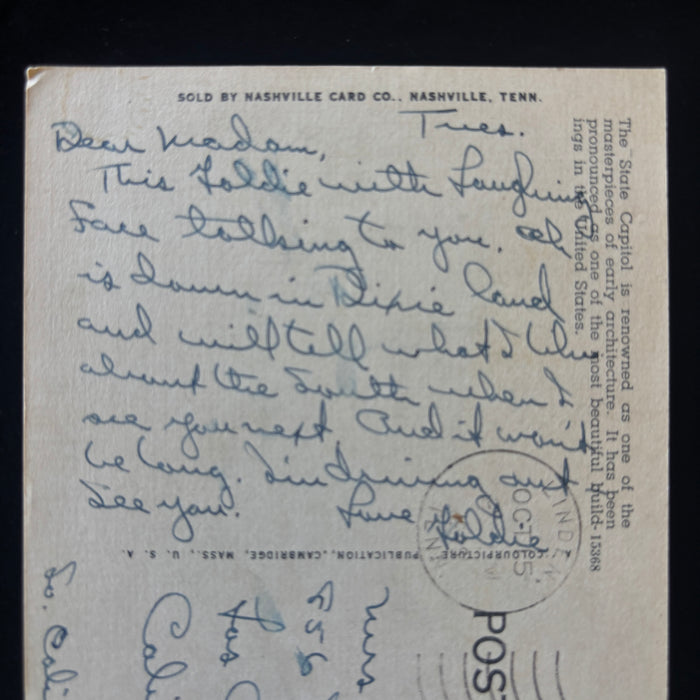 SOLD BY NASHVILLE CARD CO., NASHVILLE, TENN.
Tues.
Dear Madam,
This Goldie with Laughing
Face talking to you.
is down in Dixie land
and will tell what's
about the South when I
see you next. And it won't
be long. I'm driving out
See you. Love Goldie
The State Capitol is renowned as one of the
masterpieces of early architecture. It has been
pronounced as one of the most beautiful build-
ings in the United States.
15368
A "COLOURPICTURE" PUBLICATION, CAMBRIDGE, MASS., U. S. A.
OCT 5
TENN.
POS
Mrs
656
Los
Cali
So. Cali